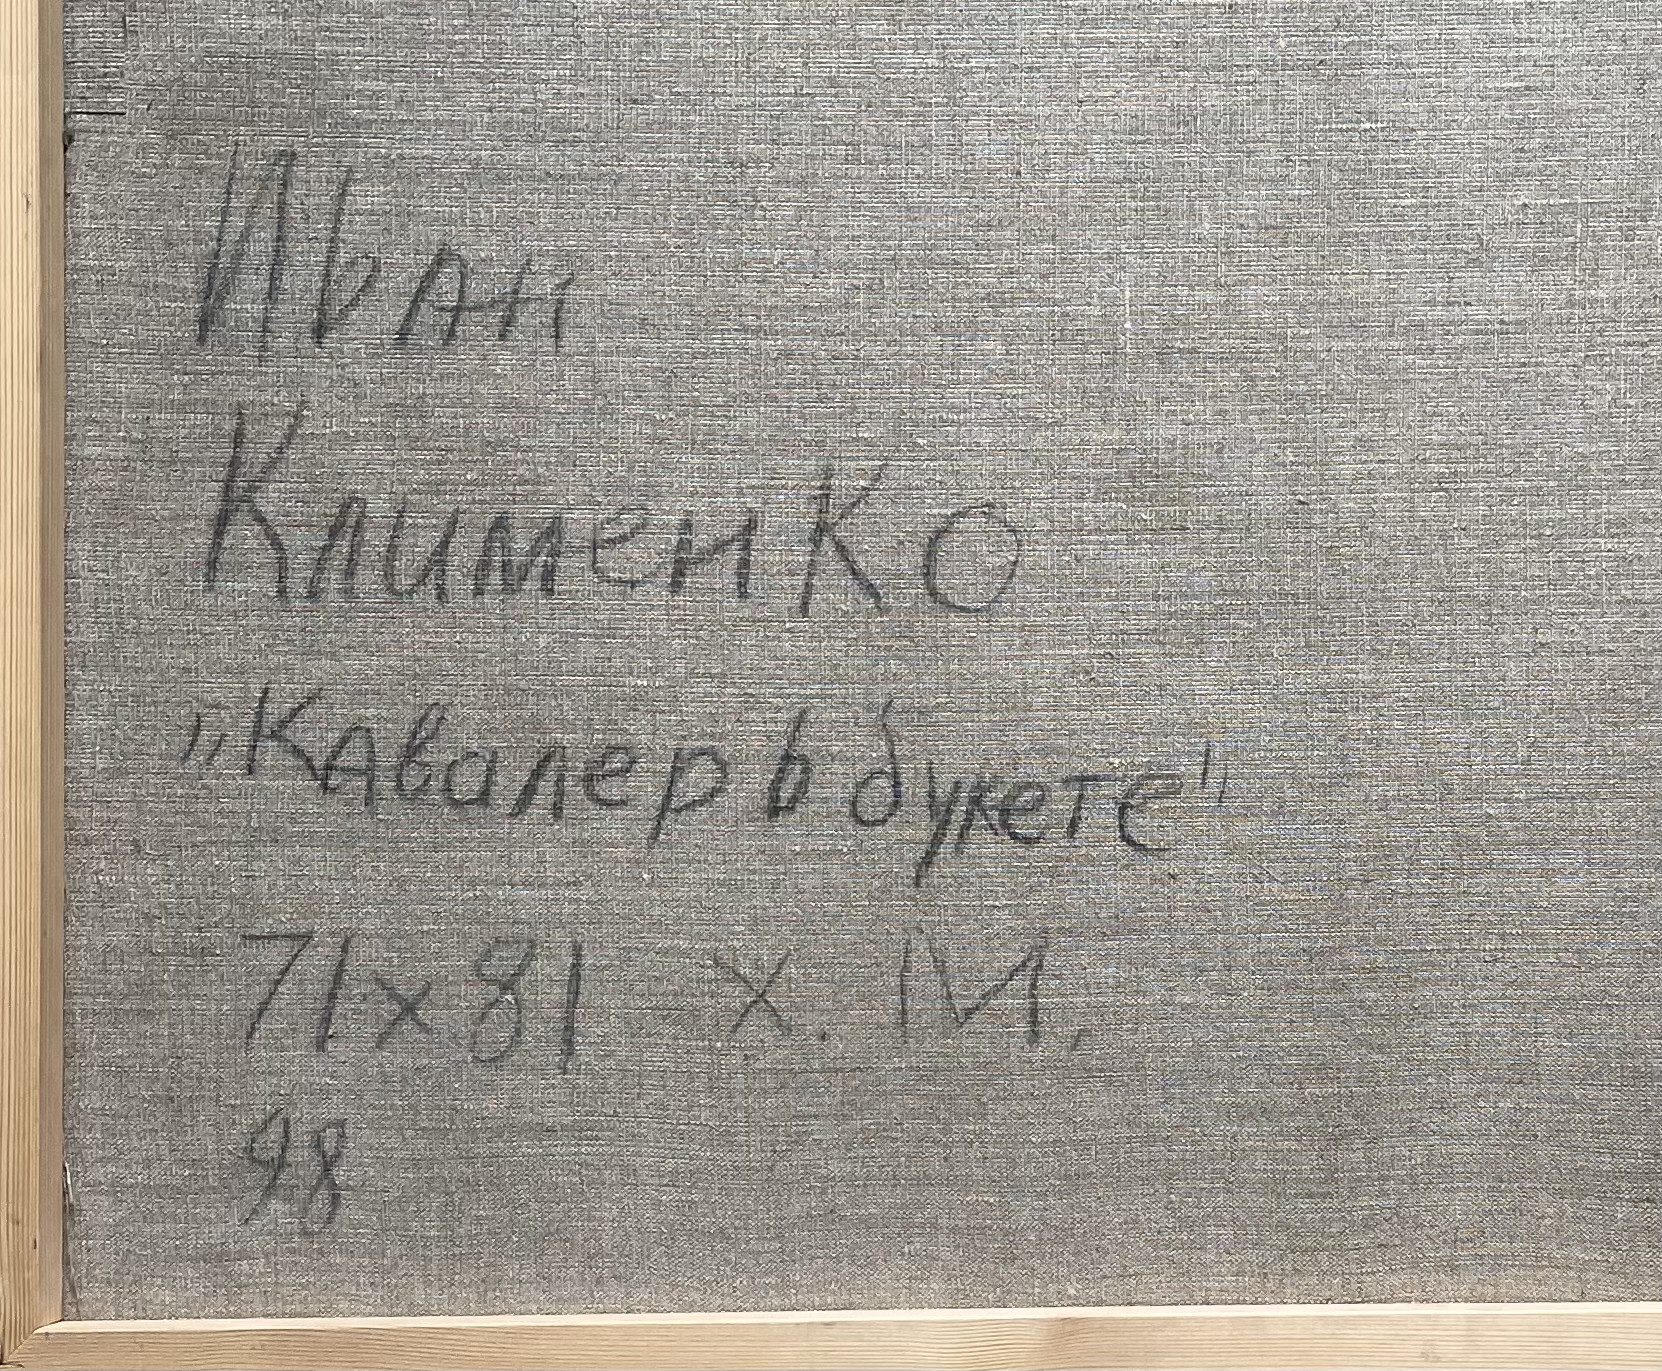 Иван
Клименко
„Кавалер в букете"
71x81 х. м.
98